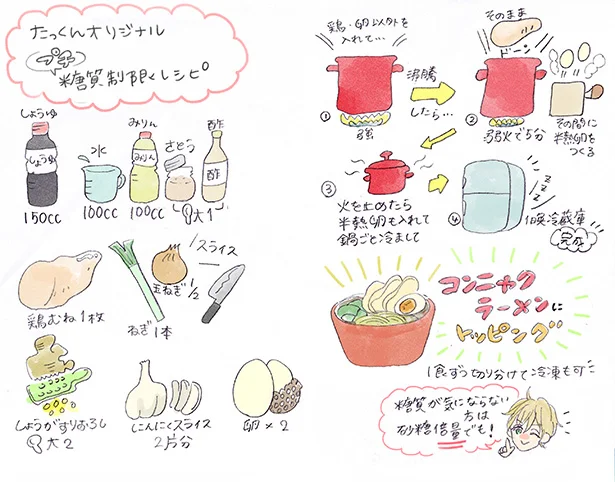 たっくんオリジナル
プチ
糖質制限レシピ
しょうゆ
しょうゆ
150cc
水
100cc
みりん
みりん
100cc
さとう
大1
酢
酢
鶏むね1枚
ねぎ1本
玉ねぎ1/2
スライス
しょうがすりおろし
大2
にんにくスライス
2片分
卵×2
鶏・卵以外を
入れて…
①
強
沸騰
したら…
そのまま
ドーン
②
弱火で5分
その間に
半熟卵を
つくる
③
火を止めたら
半熟卵も入れて
鍋ごと冷まして
④
zzz
1晩冷蔵庫
完成
コンニャク
ラーメンに
トッピング
1食ずつ切り分けて冷凍も可
糖質が気にならない
方は
砂糖倍量でも!